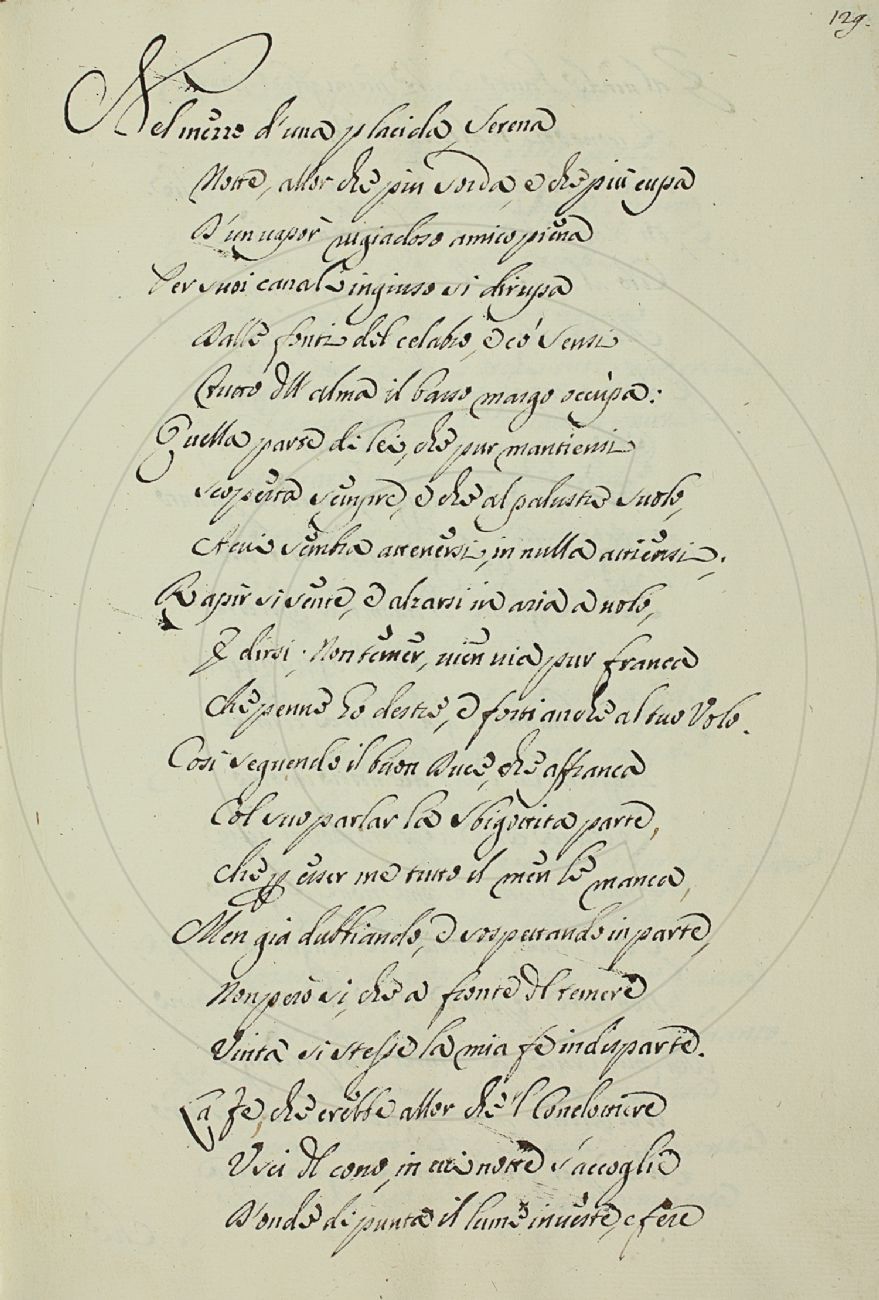 129.
Nel mezzo d'una placida, serena
Notte, allor che più sorda, e che più cupa
D'un vapor rugiadoso amico piena
Per suoi canali ingiuso si dirupa
Dalle fonti del celabro, e co' sensi
Tutto dell'alma il basso margo occupa:
Quella parte di lei, che pur mantiensi
Scoperta sempre, e che al palustre suolo,
A cui sembra attenersi, in nulla attiensi;
Rapir si sente, e alzarsi in aria a volo,
E dirsi: Non temer, vien via pur franca
Che penne ho destre, e forti anche al tuo Volo.
Così seguendo il buon Duce, che affranca
Col suo parlar la sbigottita parte,
Che p esser me tutto il men le manca,
Men già dubbiando, e sospettando in parte,
Non però sì, che a fronte del temere
Vinta si stesse la mia fe in disparte.
La fe, che crebbe allor che 'l Condottiere
Uscì del cono, in cui notte s'accoglie
D'onde di punta il lume investe, e fere